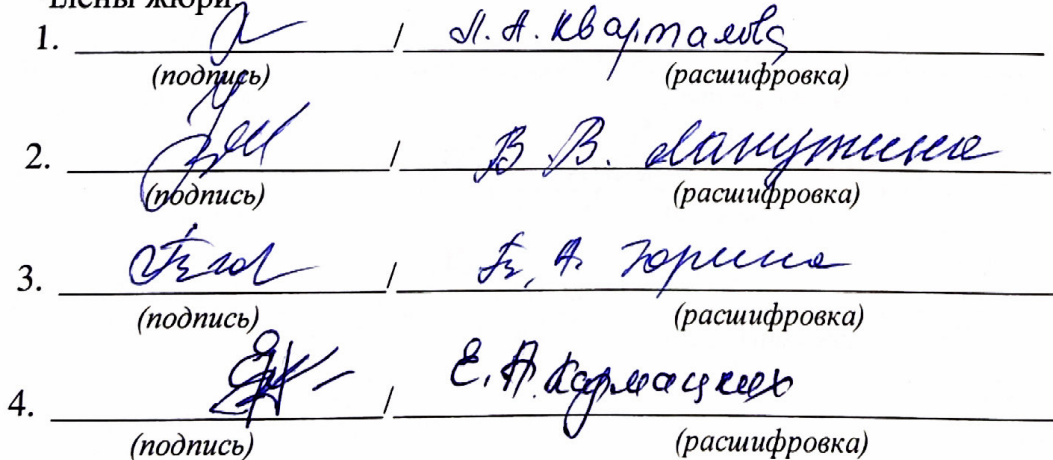 Члены жюри
1. / Л. А. Кварталова
(подпись) (расшифровка)
2. / В В. Лапушкина
(подпись) (расшифровка)
3. / А. Юрина
(подпись) (расшифровка)
4. / Е. А. Кармацких
(подпись) (расшифровка)